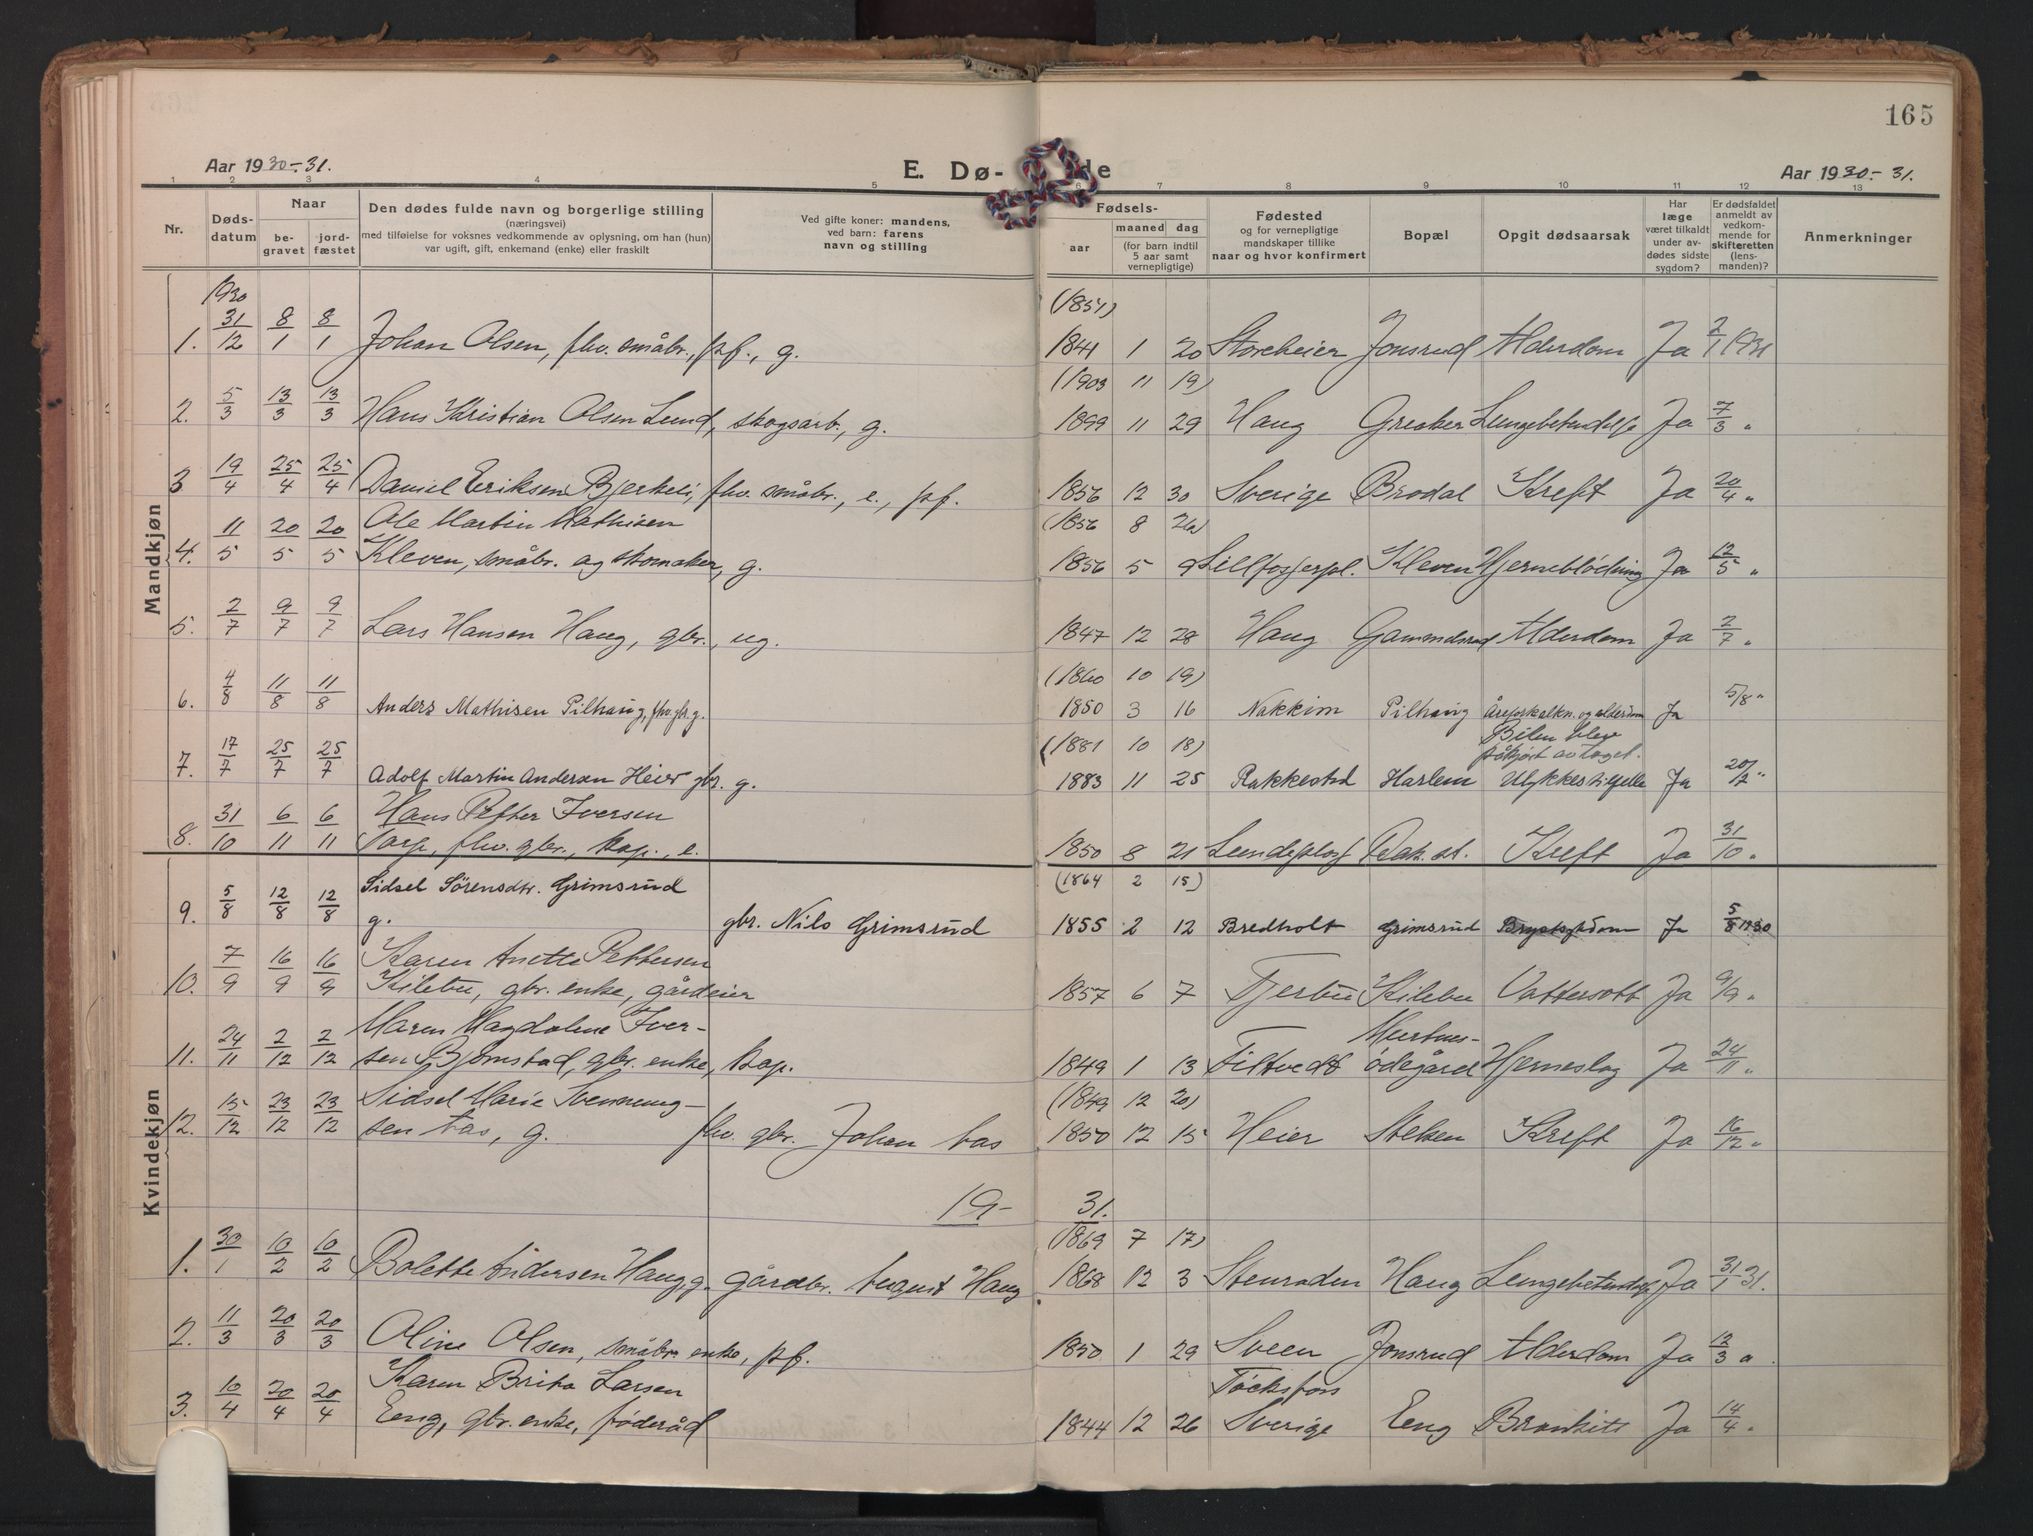 165
Aar 1930-31.
E. Dø- de
Aar 1930-31.
1 2 3 4 5 6 7 8 9 10 11 12 13
Nr. Døds-datum Naar be-gravet jord-fæstet
Den dødes fulde navn og borgerlige stilling
(næringsvei)
med tilføielse for voksnes vedkommende av oplysning, om han (hun)
var ugift, gift, enkemand (enke) eller fraskilt
Ved gifte koner: mandens,
ved barn: farens
navn og stilling
Fødsels- aar maaned dag
(for barn indtil 5 aar samt vernepligtige)
Fødested
og for vernepligtige
mandskaper tillike
naar og hvor konfirmert
Bopæl
Opgit dødsaarsak
Har læge været tilkaldt under av-dødes sidste sygdom?
Er dødsfaldet anmeldt av vedkom-mende for skifteretten (lens-manden)?
Anmerkninger
Mandkjøn
1930
(1851)
1. 31/12 8/1 8/1 Johan Olsen, fhv. småbr., fsf., g. 1841 1 20 Storeheier Jonsrud Alderdom Ja 2/1 1931
(1903 11 19)
2. 5/3 13/3 13/3 Hans Kristian Olsen Lund, skogsarb., g. 1899 11 29 Haug Greaker Lungebetendelse Ja 7/3 "
3 19/4 25/4 25/4 Daniel Eriksen Bjerkeli, fhv. småbr., e., fsf. 1856 12 30 Sverige Brodal Kreft Ja 20/4 "
Ole Martin Mathisen (1856 8 26)
4. 11/5 20/5 20/5 Kleven, småbr. og skomaker, g. 1856 5 9 Kleven Hjerneblødning Ja 12/5 "
5. 2/7 9/7 9/7 Lars Hansen Haug, gbr., ug. 1847 12 28 Haug Gammelsrud Alderdom Ja 2/7 "
(1860 10 19)
6. 4/8 11/8 11/8 Anders Mathisen Pilhaug, fhv. gbr. g. 1850 3 16 Nakkim Pilhaug Åreforkalkn. og alderdom Ja 5/8 "
(1881 10 18) Bilen blev
påkjørt av toget.
7. 17/7 25/7 25/7 Adolf Martin Andersen Heier gbr. g. 1883 11 25 Rakkestad Harlem Ulykkestilfelle Ja 20/7 "
Hans Petter Iversen
8. 31/10 6/11 6/11 Torp, fhv. gbr., kap., e. 1850 8 21 Rak. st. Kreft Ja 31/10 "
Kvindekjøn
Sidsel Sørensdtr. Grimsrud (1864 2 15)
9. 5/8 12/8 12/8 g. gbr. Nils Grimsrud 1855 2 12 Bredholt Grimsrud Brystsykdom Ja 5/8 1930
Karen Anette Pettersen
10. 7/9 16/9 16/9 Kilebu, gbr. enke, gårdeier 1857 6 7 Tjerbu Kilebu Vattersott Ja 9/9 "
Maren Magdalene Iver-
11. 24/11 2/12 2/12 sen Bjørnstad, gbr. enke, kap. 1849 1 13 Filtvedt ødegård Hjerneslag Ja 24/11 "
Sidsel Marie Svenning- (1849 12 20)
12. 15/12 23/12 23/12 sen Aas, g. fhv. gbr. Johan Aas 1850 12 15 Heier Steken Kreft Ja 16/12 "
19- 31.
(1869 7 17)
1. 30/1 10/2 10/2 Bolette Andersen Haug, g. gårdbr. August Haug 1868 12 3 Stenroden Haug Lungebetendelse Ja 31/1 31.
2. 11/3 20/3 20/3 Oline Olsen, småbr. enke, fsf. 1850 1 29 Sveen Jonsrud Alderdom Ja 12/3 "
Karen Brita Larsen Töcksfors
3. 10/4 20/4 20/4 Eeng, gbr. enke, føderåd 1844 12 26 Sverige Eeng Bronkitt Ja 14/4 "